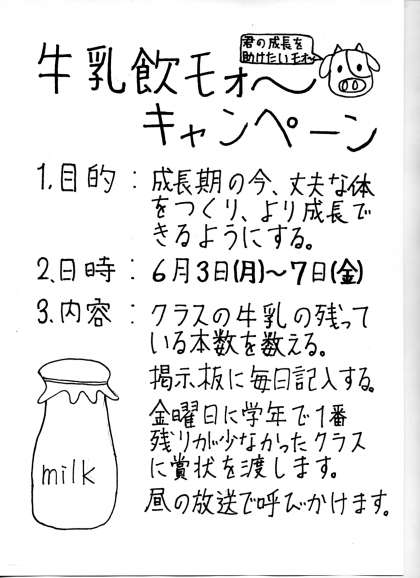 君の成長を
助けたいモォ〜
牛乳飲モォ〜
キャンペーン
1.目的：成長期の今、丈夫な体
をつくり、より成長で
きるようにする。
2.日時：6月3日(月)〜7日(金)
3.内容：クラスの牛乳の残って
いる本数を数える。
掲示板に毎日記入する。
金曜日に学年で1番
残りが少なかったクラス
に賞状を渡します。
昼の放送で呼びかけます。
milk